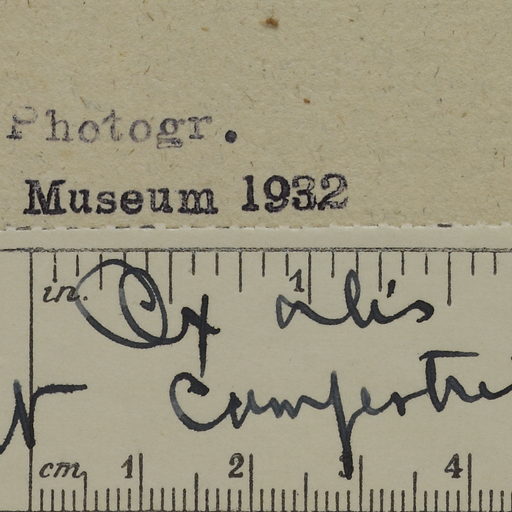 Photogr.
Museum 1932
in. 1
Ox alis
N campestri
cm 1 2 3 4